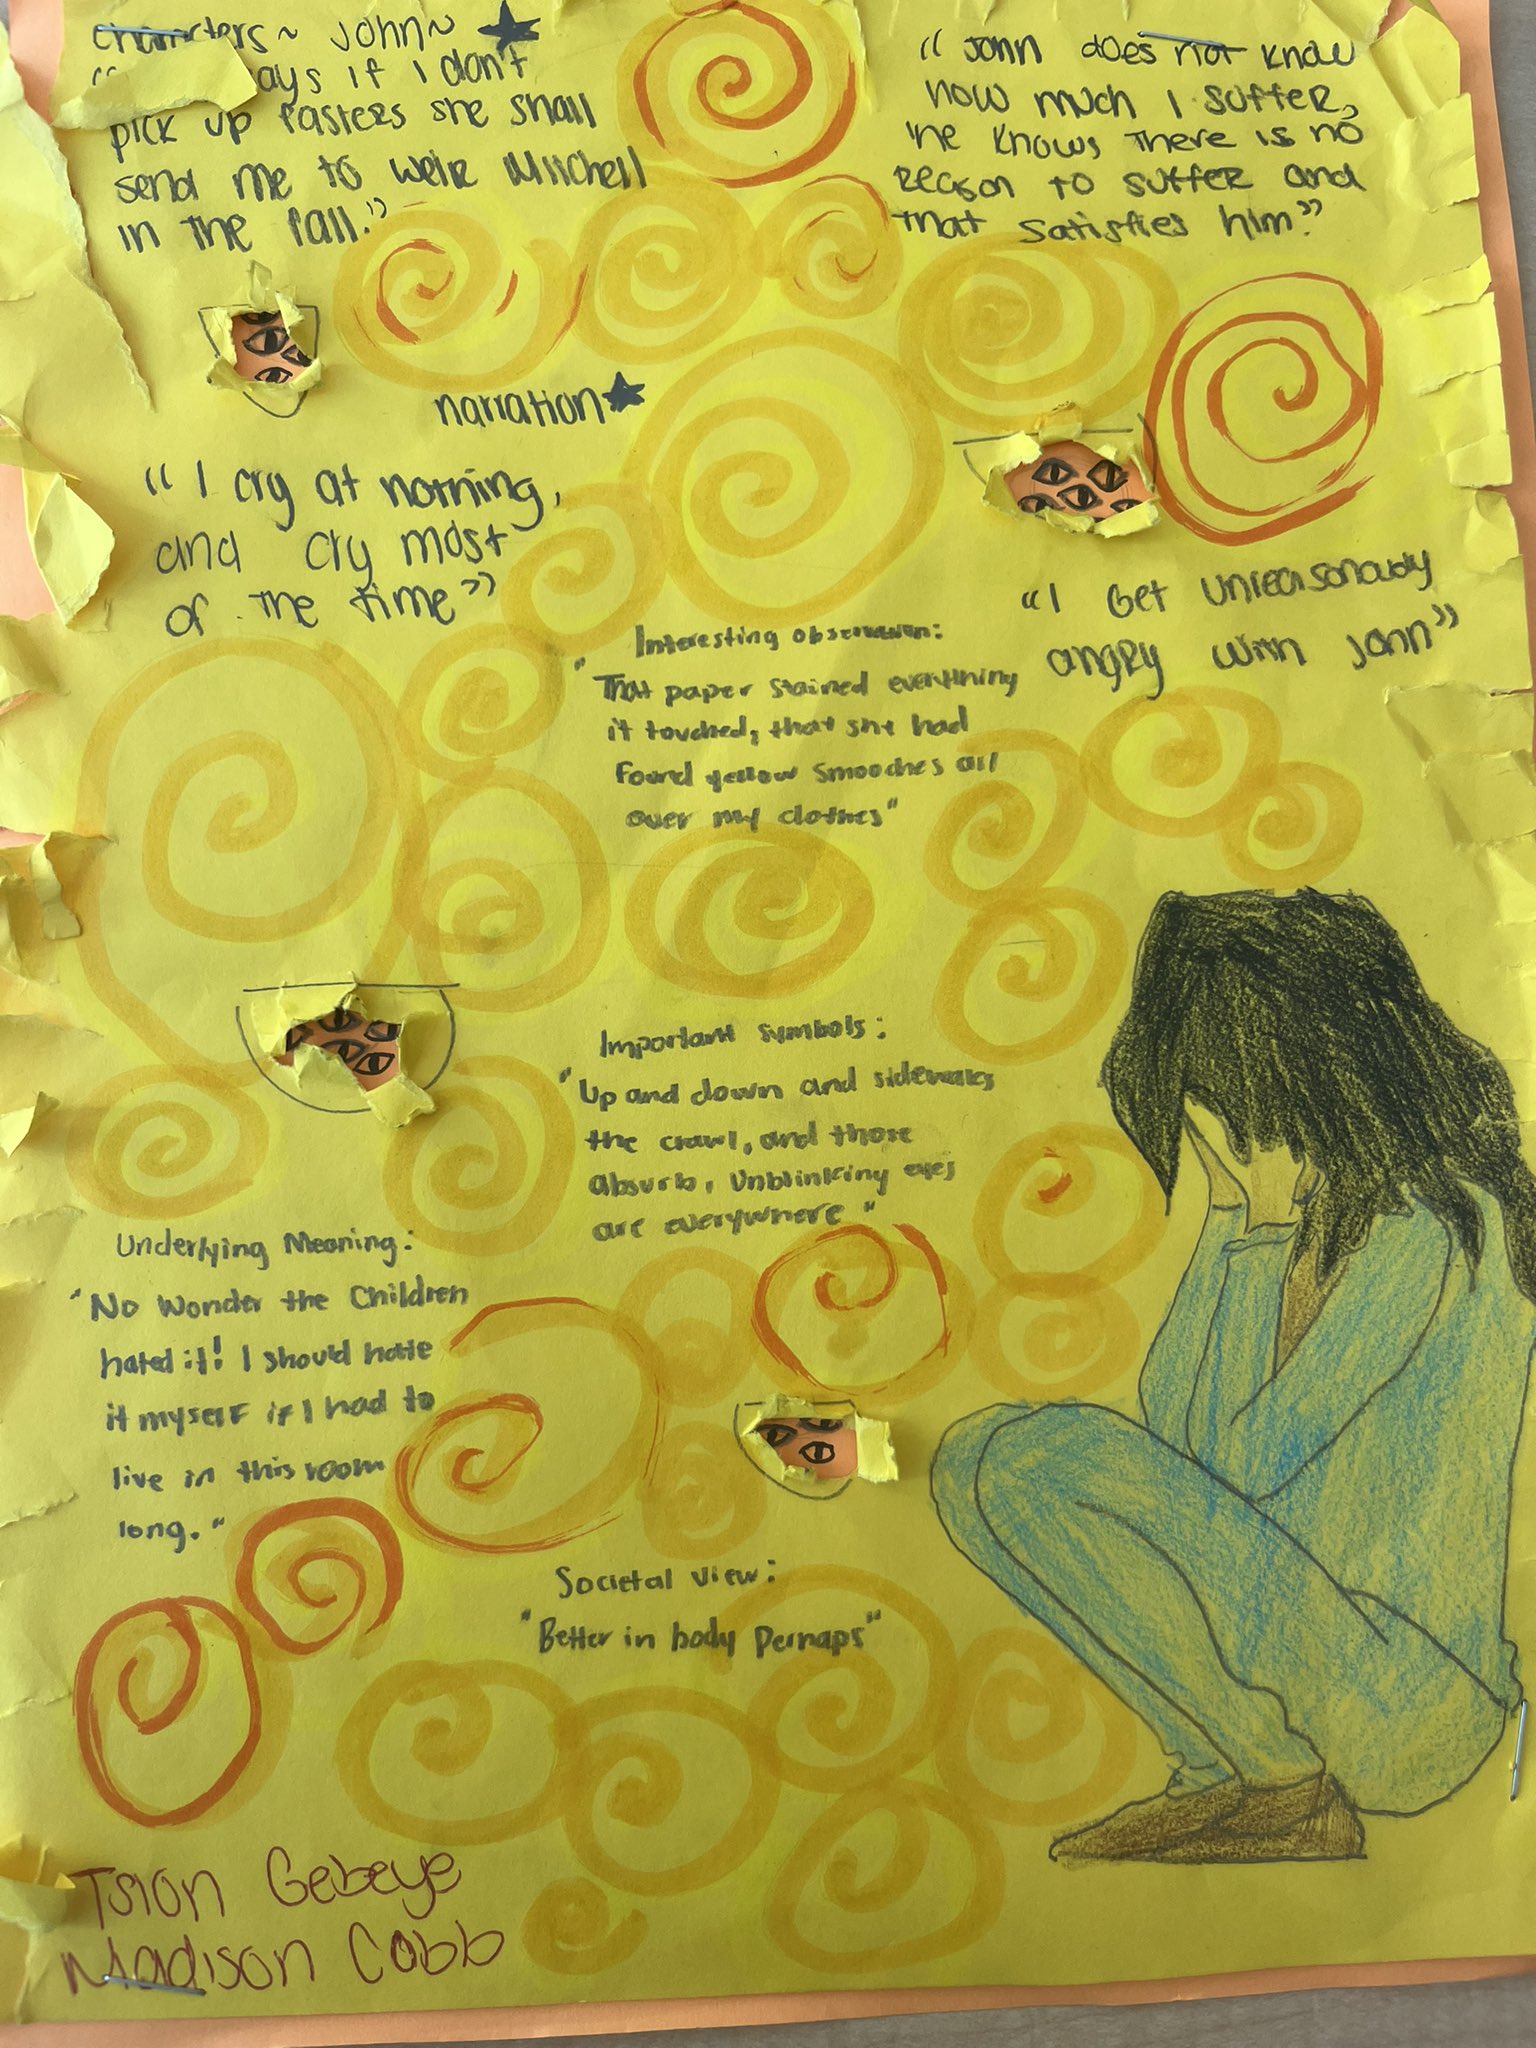 characters~ John~
ays if I don't
pick up fasters she shall
send me to Weir Mitchell
in the fall."
"John does not know
how much I suffer,
he knows there is no
reason to suffer and
that satisfies him."
narration
"I cry at nothing,
and cry most
of the time"
"I Get unreasonably
angry with John"
Interesting observation:
"That paper stained everything
it touched, that she had
Found yellow smooches all
over my clothes"
Important symbols:
"Up and down and sideways
the crawl, and those
absurb, unblinking eyes
are everywhere"
Underlying Meaning:
"No Wonder the Children
hated it! I should hate
it myself if I had to
live in this room
long."
Societal View:
"Better in body Perhaps"
Tsion Gebeye
Madison Cobb